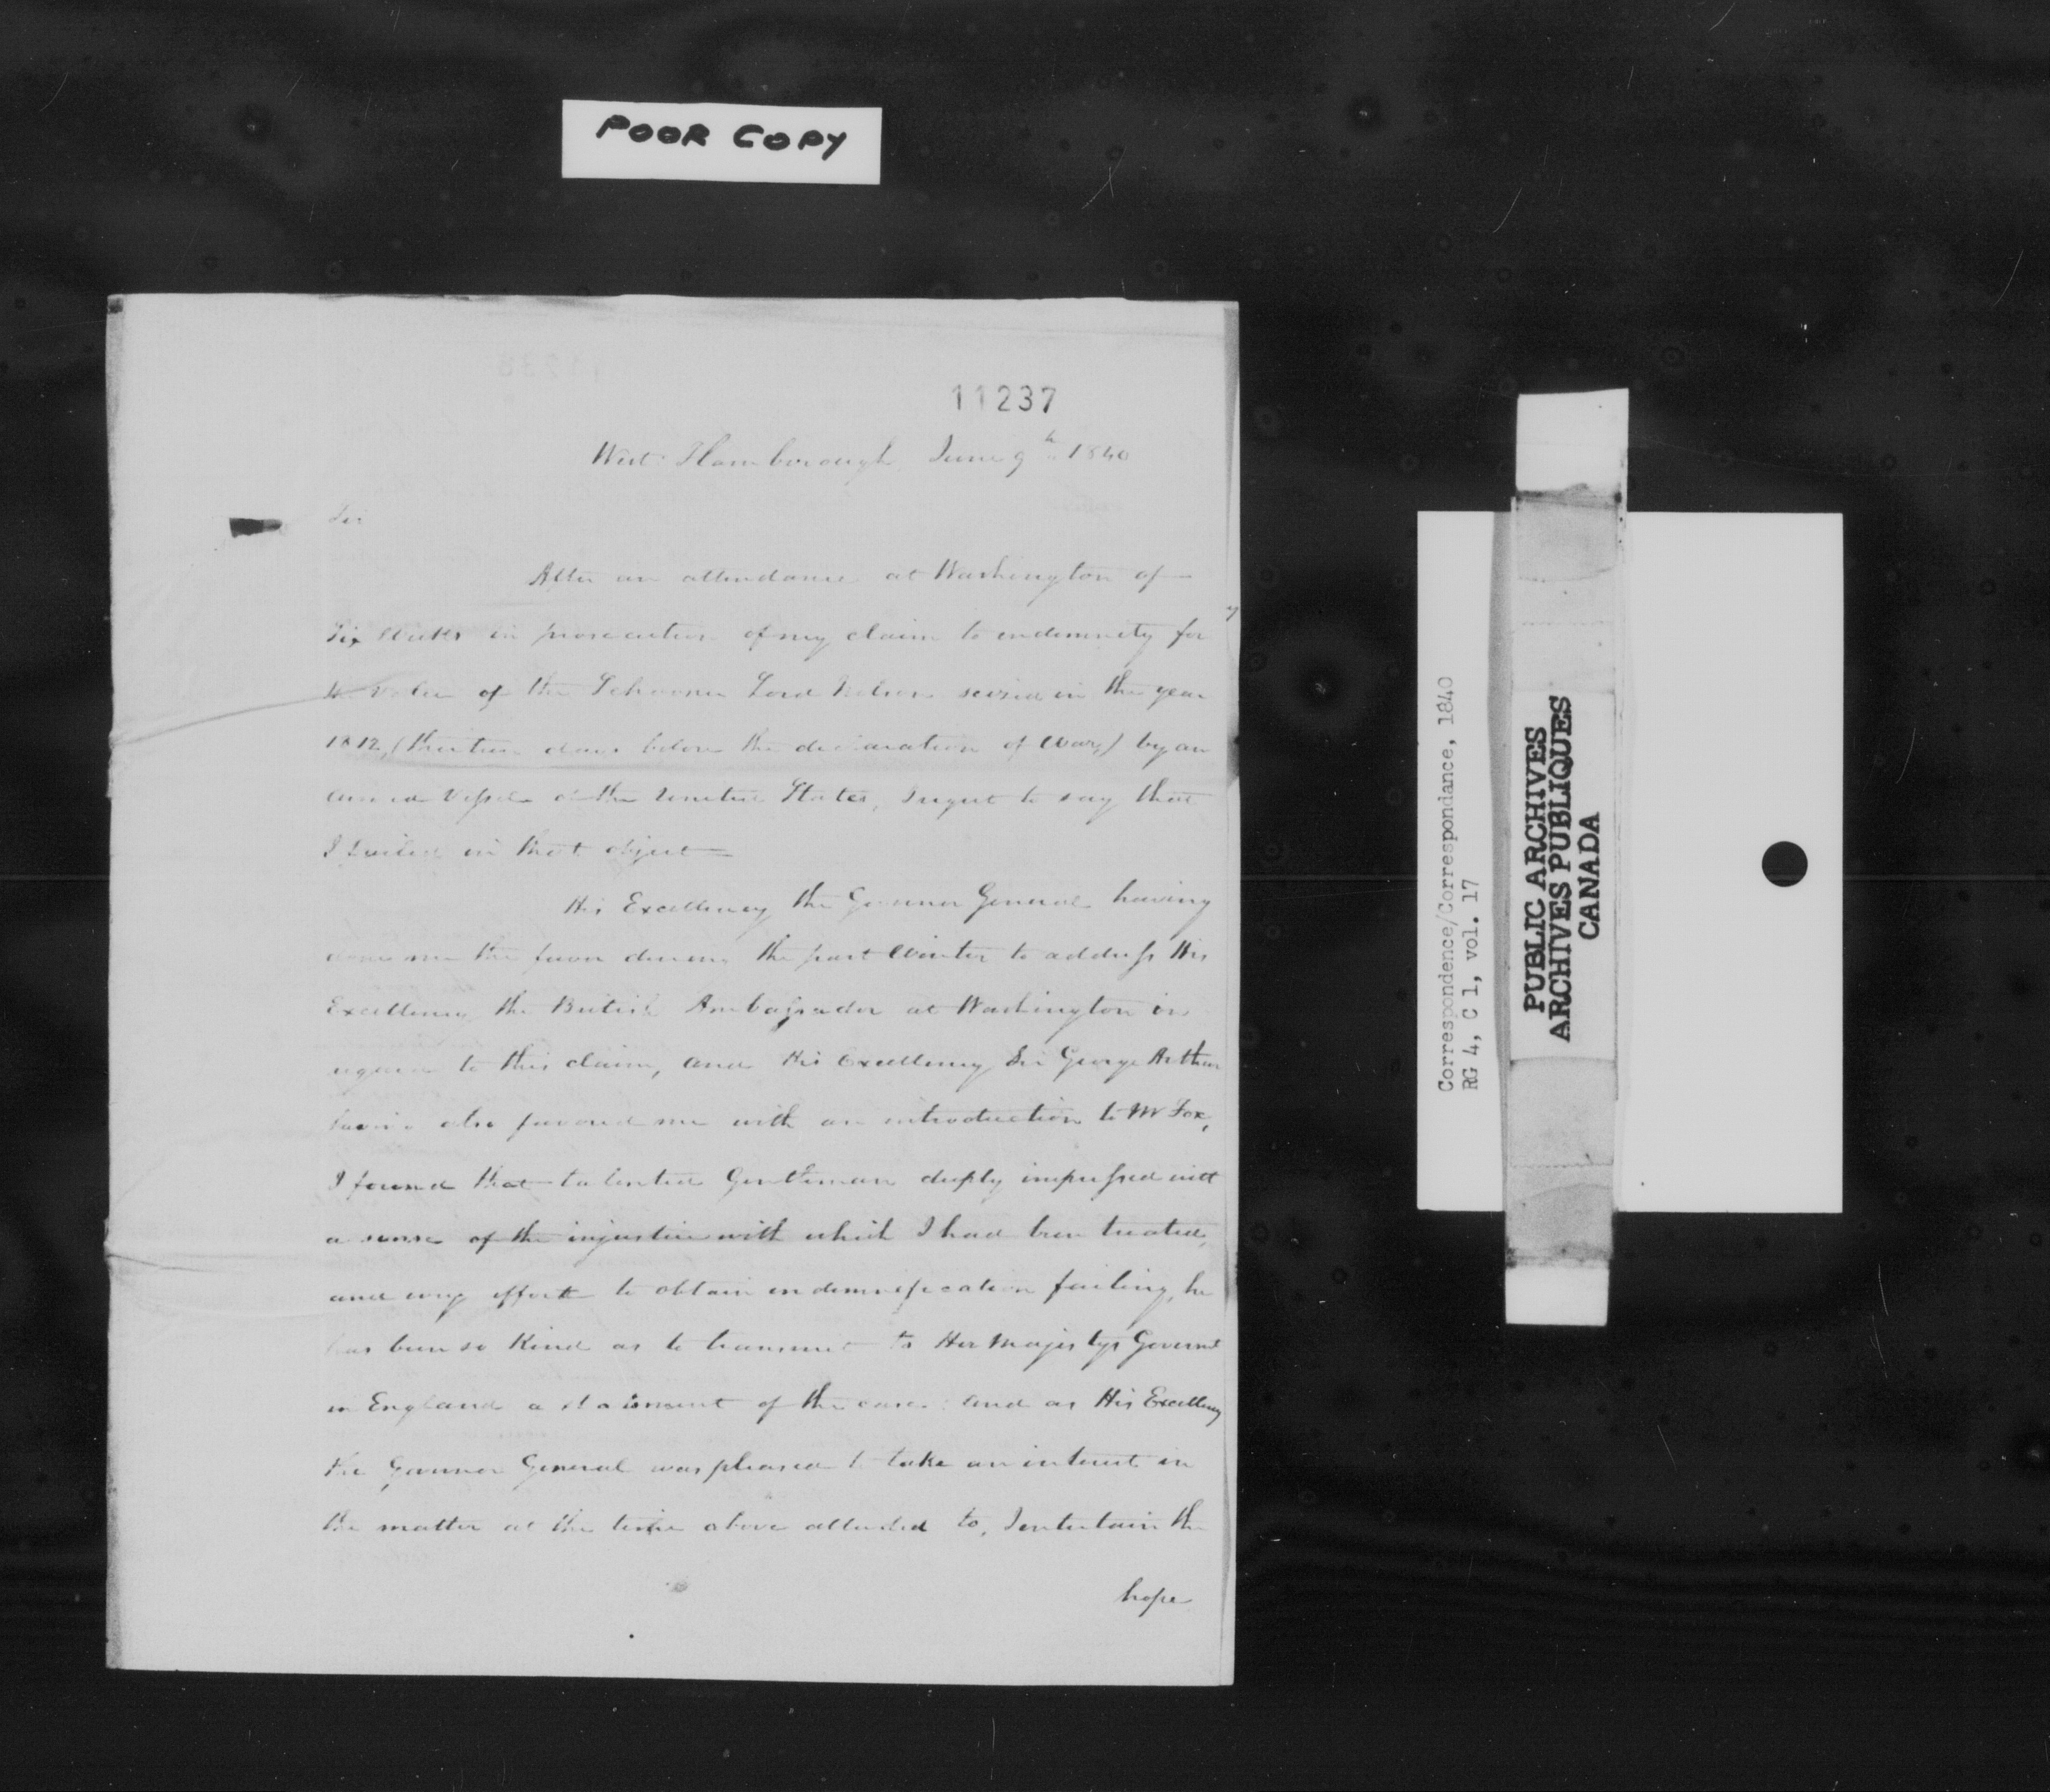 POOR COPY
11237
West Flamborough, June 9th 1840
Sir
After an attendance at Washington of
Six Weeks in prosecution of my claim to indemnity for
the value of the Schooner Lord Nelson seized in the year
1812, (thirteen days before the declaration of War,) by an
armed Vessel of the United States, I regret to say that
I failed in that object
His Excellency the Governor General having
done me the favor during the past Winter to address His
Excellency the British Ambassador at Washington in
regard to this claim, and His Excellency Sir George Arthur
having also favored me with an introduction to Mr Fox,
I found that talented Gentleman deeply impressed with
a sense of the injustice with which I had been treated,
and every effort to obtain indemnification failing, he
has been so kind as to transmit to Her Majestys Governt
in England a statement of the case: and as His Excellency
the Governor General was pleased to take an interest in
the matter at the time above alluded to, I entertain the
hope
Correspondence/Correspondance, 1840
RG 4, C 1, vol. 17
PUBLIC ARCHIVES
ARCHIVES PUBLIQUES
CANADA